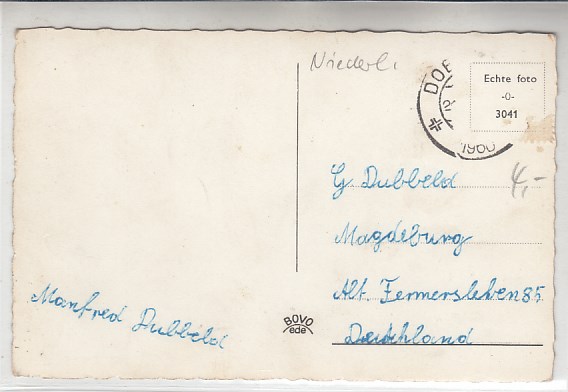 Niederl.
DOE
1960
Echte foto
-0-
3041
4,-
G Dubbeld
Magdeburg
Alt. Fermersleben 85
Deutchland
Manfred Dubbeld
BOVO
ede